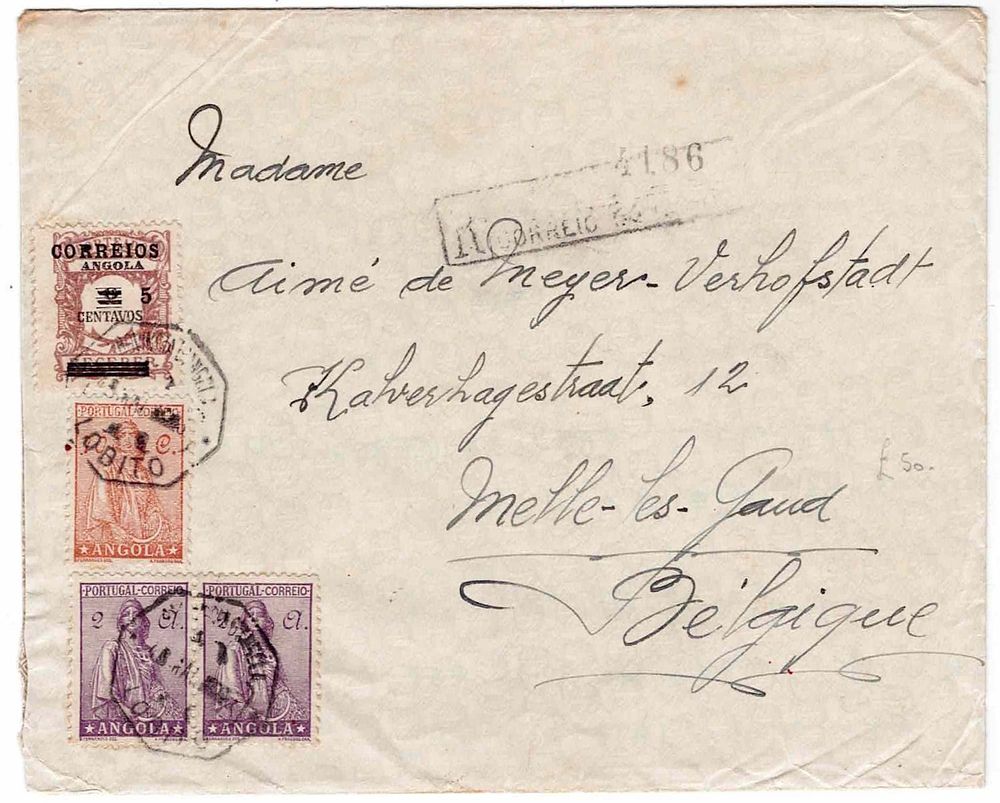 Madame
4186
R CORREIO
Aimé de Meyer-Verhofstadt
Kalverhagestraat, 12
Melle-les-Gand
Bélgique
£50.
CORREIOS
ANGOLA
5
CENTAVOS
LOBITO
PORTUGAL-CORREIO
C.
ANGOLA
PORTUGAL-CORREIO
2 A.
ANGOLA
PORTUGAL-CORREIO
2 A.
ANGOLA